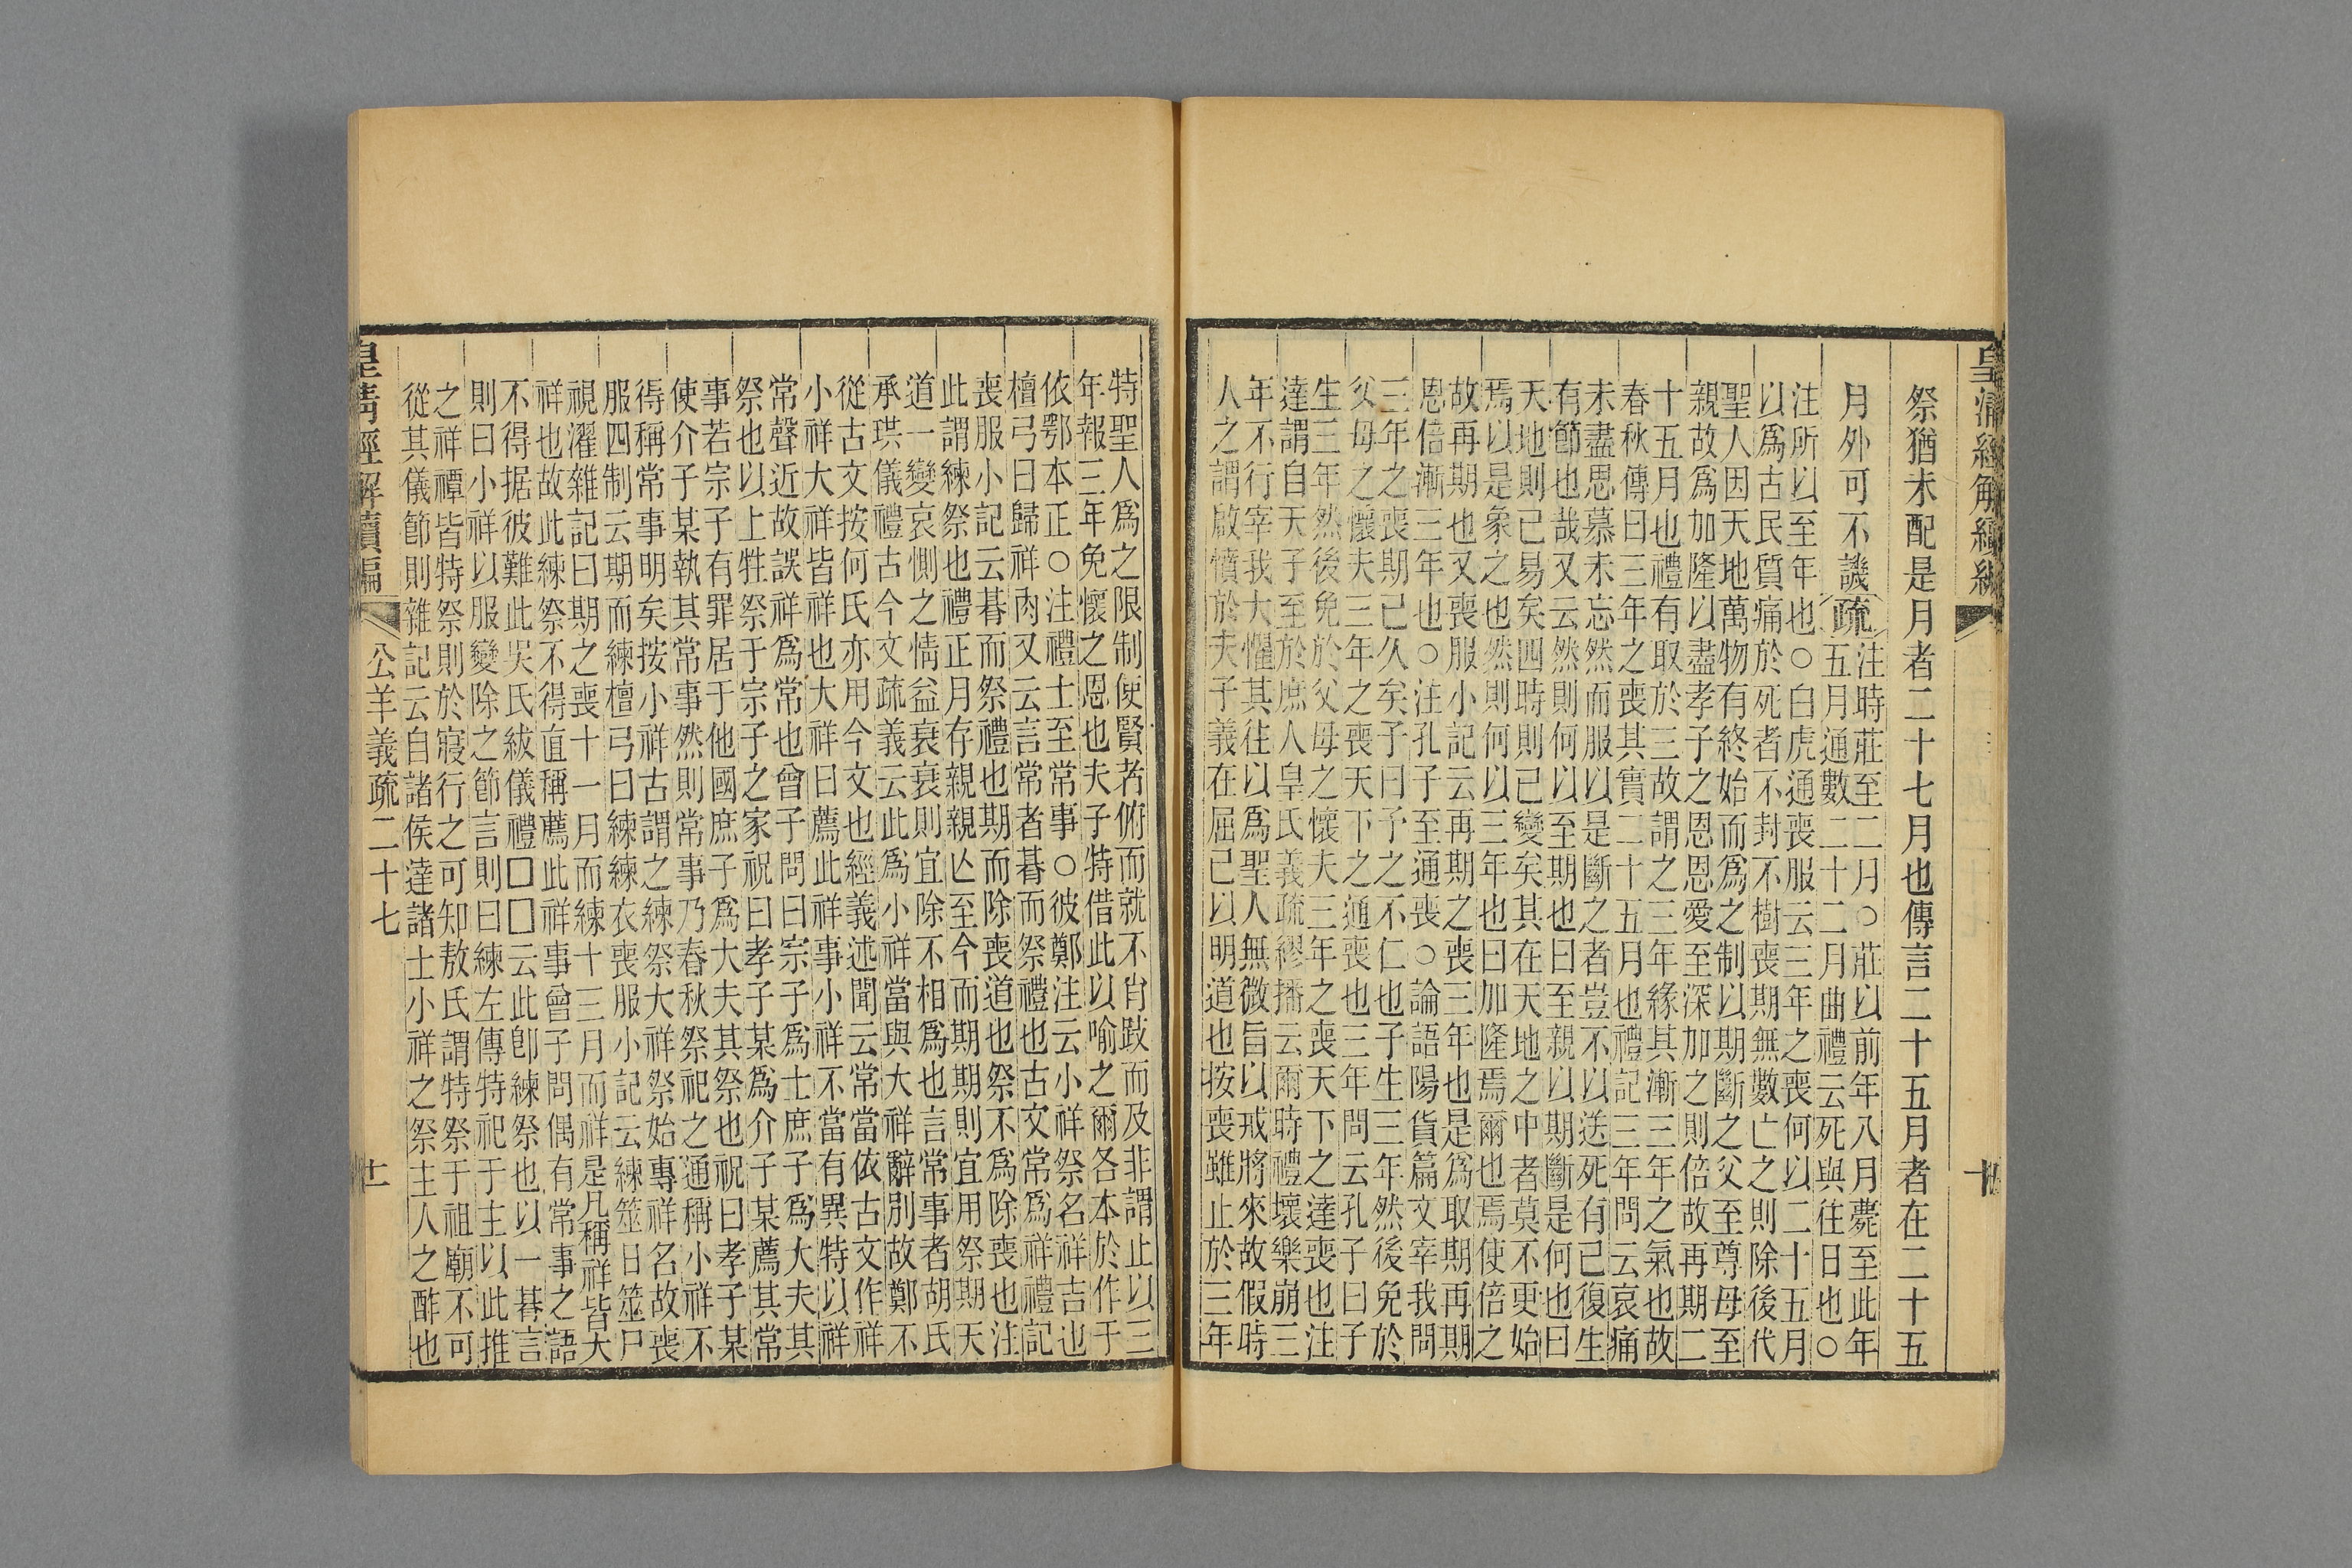 皇清經解續編
十
祭猶未配是月者二十七月也傳言二十五月者在二十五
月外可不譏疏
注時莊至二月○莊以前年八月薨至此年
五月通數二十二月曲禮云死與往日也○
注所以至年也○白虎通喪服云三年之喪何以二十五月
以爲古民質痛於死者不封不樹喪期無數亡之則除後代
聖人因天地萬物有終始而爲之制以期斷之父至尊母至
親故爲加隆以盡孝子之恩恩愛至深加之則倍故再期二
十五月也禮有取於三故謂之三年緣其漸三年之氣也故
春秋傳曰三年之喪其實二十五月也禮記三年問云哀痛
未盡思慕未忘然而服以是斷之者豈不以送死有已復生
有節也哉又云然則何以至期也曰至親以期斷是何也曰
天地則已易矣四時則已變矣其在天地之中者莫不更始
焉以是象之也然則何以三年也曰加隆焉爾也焉使倍之
故再期也又喪服小記云再期之喪三年也是爲取期再期
恩倍漸三年也○注孔子至通喪○論語陽貨篇文宰我問
三年之喪期已久矣子曰予之不仁也子生三年然後免於
父母之懷夫三年之喪天下之通喪也三年問云孔子曰子
生三年然後免於父母之懷夫三年之喪天下之達喪也注
達謂自天子至於庶人皇氏義疏繆播云爾時禮壞樂崩三
年不行宰我大懼其往以爲聖人無微旨以戒將來故假時
人之謂啟憤於夫子義在屈己以明道也按喪雖止於三年
特聖人爲之限制使賢者俯而就不肖跂而及非謂止以三
年報三年免懷之恩也夫子特借此以喻之爾各本於作于
依鄂本正○注禮士至常事○彼鄭注云小祥祭名祥吉也
檀弓曰歸祥肉又云言常者朞而祭禮也古文常爲祥禮記
喪服小記云朞而祭禮也期而除喪道也祭不爲除喪也注
此謂練祭也禮正月存親親亾至今而期期則宜用祭期天
道一變哀惻之情益衰衰則宜除不相爲也言常事者胡氏
承珙儀禮古今文疏義云此爲小祥當與大祥辭別故鄭不
從古文按何氏亦用今文也經義述聞云常當依古文作祥
小祥大祥皆祥也大祥曰薦此祥事小祥不當有異特以祥
常聲近故誤祥爲常也曾子問曰宗子爲士庶子爲大夫其
祭也以上牲祭于宗子之家祝曰孝子某爲介子某薦其常
事若宗子有罪居于他國庶子爲大夫其祭也祝曰孝子某
使介子某執其常事然則常事乃春秋祭祀之通稱小祥不
得稱常事明矣按小祥古謂之練祭大祥祭始專祥名故喪
服四制云期而練檀弓曰練練衣喪服小記云練筮日筮尸
視濯雜記曰期之喪十一月而練十三月而祥是凡稱祥皆大
祥也故此練祭不得直稱薦此祥事曾子問偶有常事之語
不得据彼難此吳氏紱儀禮□□云此卽練祭也以一朞言
則曰小祥以服變除之節言則曰練左傳特祀于主以此推
之祥禫皆特祭則於寢行之可知敖氏謂特祭于祖廟不可
從其儀節則雜記云自諸侯達諸士小祥之祭主人之酢也
皇清經解續編
公羊義疏二十七
十一